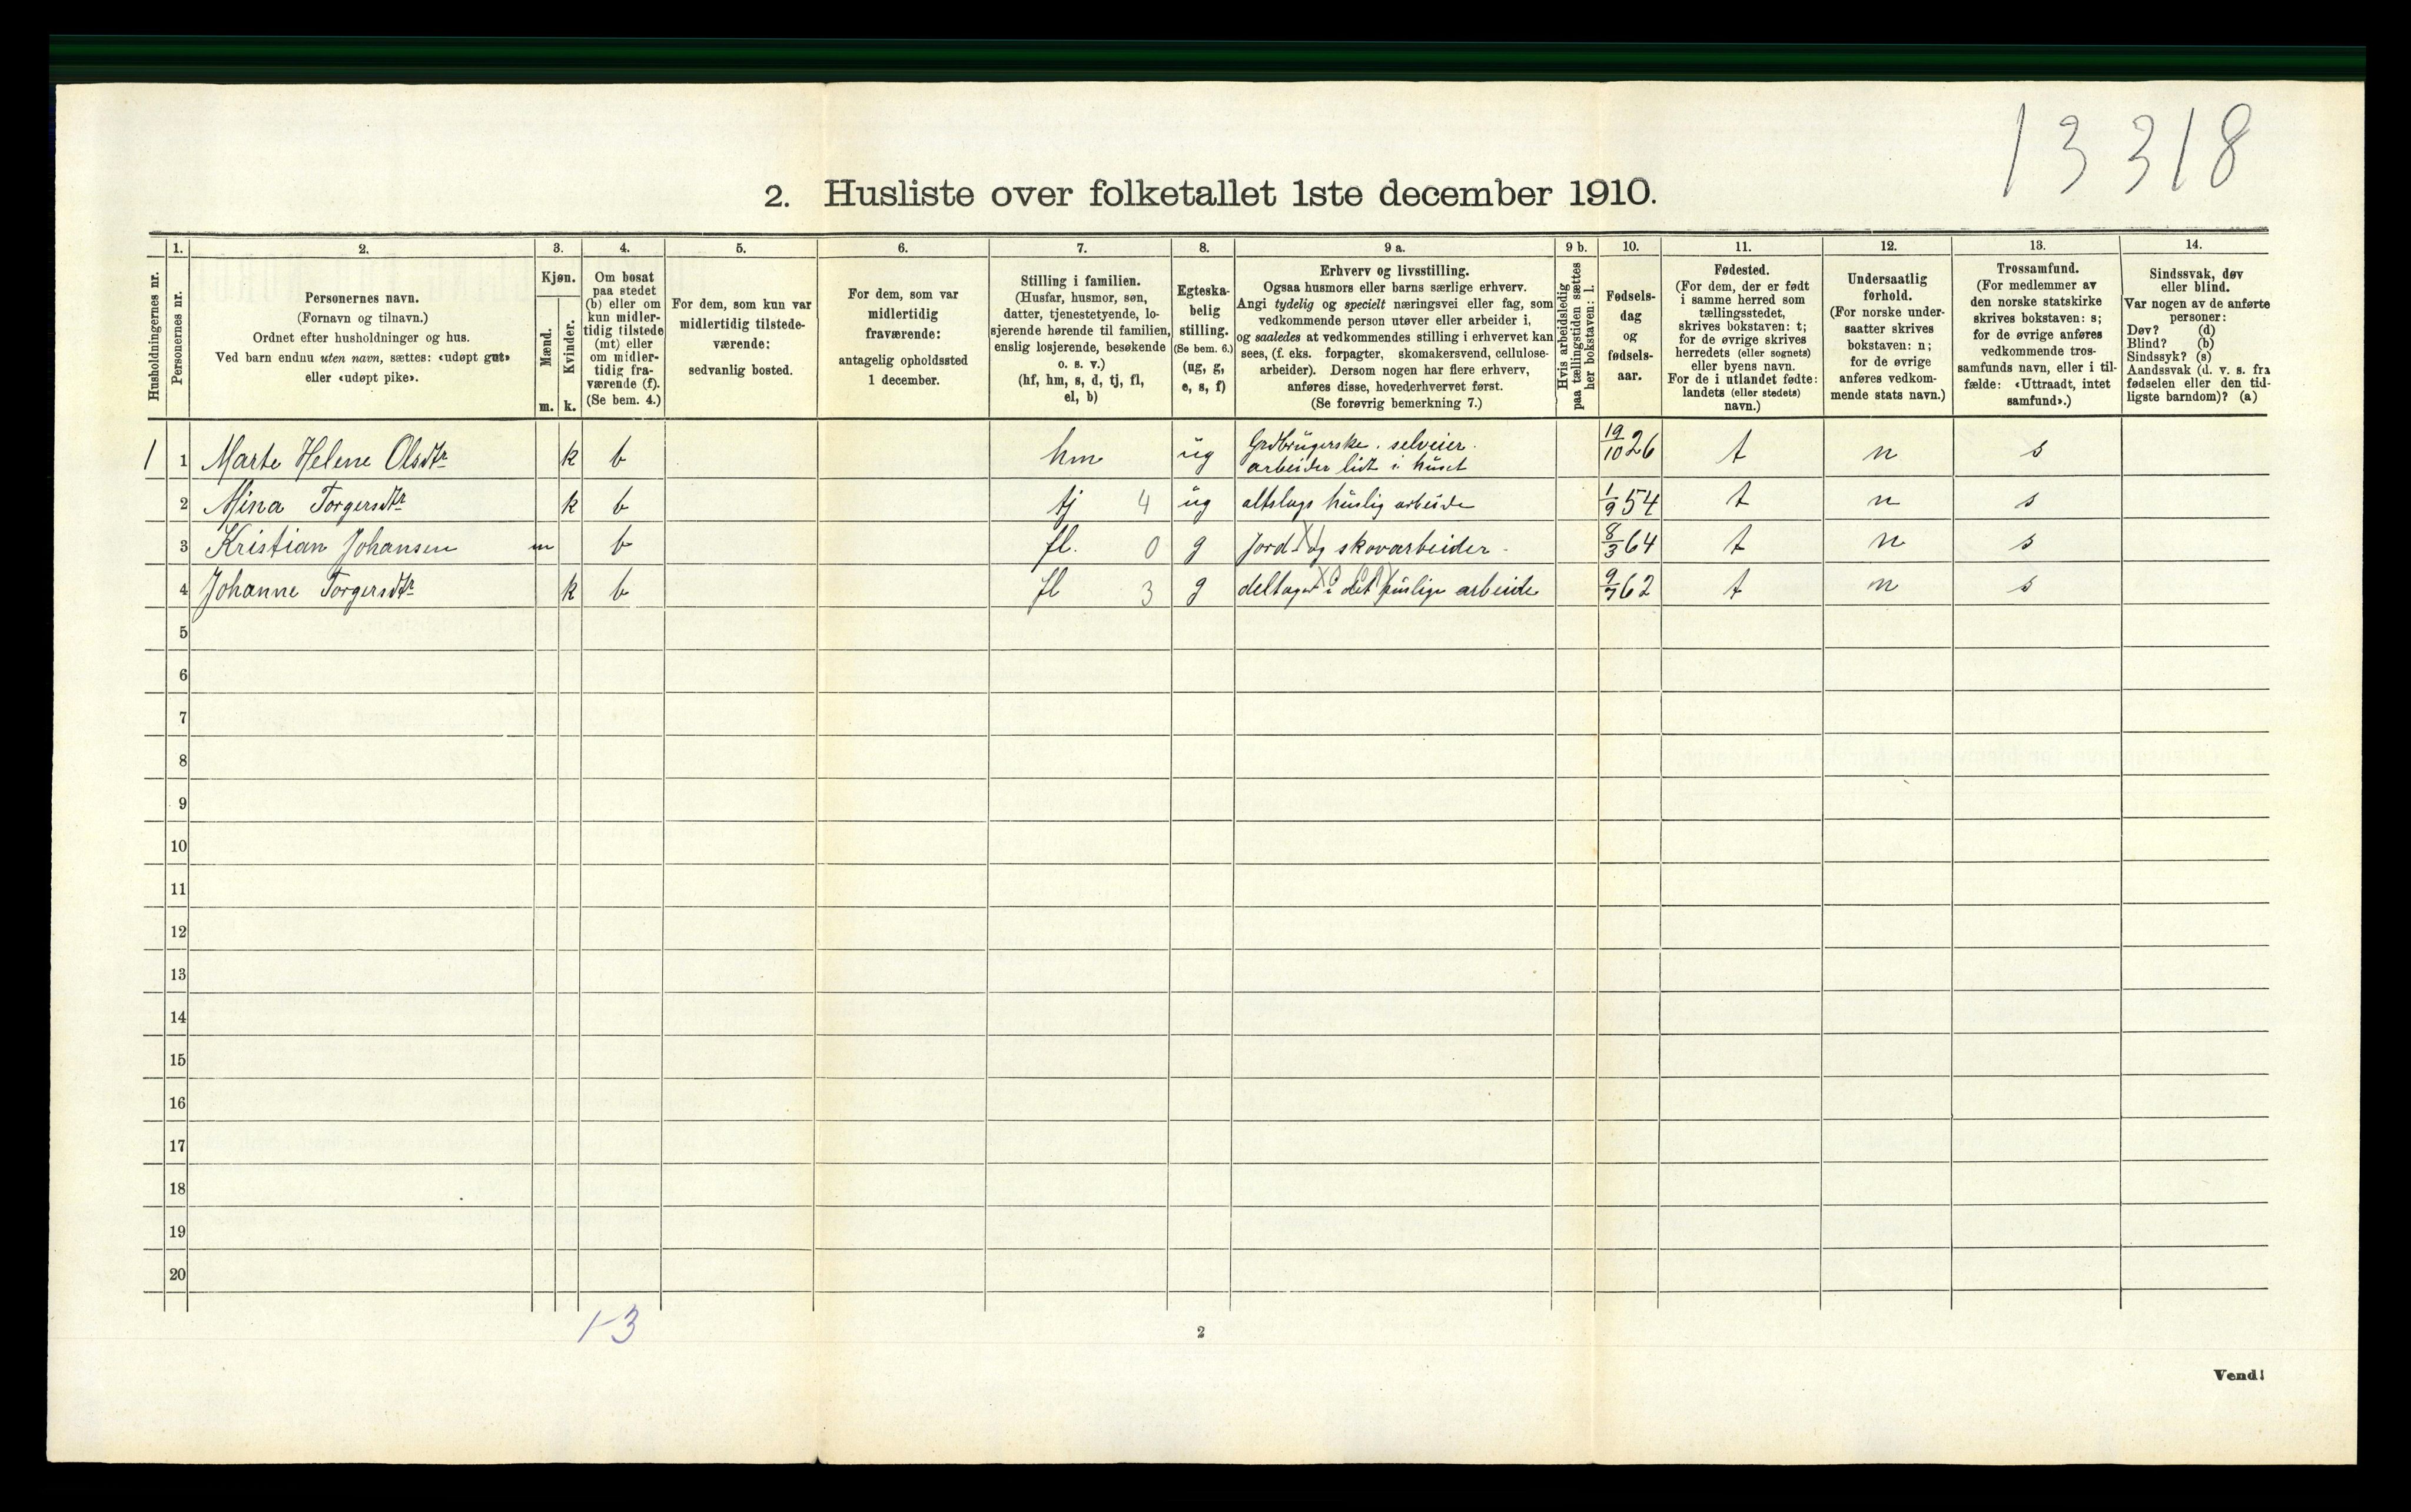 13 318
2. Husliste over folketallet 1ste december 1910.
Husholdningernes nr.
1.
Personernes nr.
2.
Personernes navn.
(Fornavn og tilnavn.)
Ordnet efter husholdninger og hus.
Ved barn endnu uten navn, sættes: «udøpt gut»
eller «udøpt pike».
3.
Kjøn.
Mænd.
Kvinder.
m. k.
4.
Om bosat
paa stedet
(b) eller om
kun midler-
tidig tilstede
(mt) eller
om midler-
tidig fra-
værende (f).
(Se bem. 4.)
5.
For dem, som kun var
midlertidig tilstede-
værende:
sedvanlig bosted.
6.
For dem, som var
midlertidig
fraværende:
antagelig opholdssted
1 december.
7.
Stilling i familien.
(Husfar, husmor, søn,
datter, tjenestetyende, lo-
sjerende hørende til familien,
enslig losjerende, besøkende
o. s. v.)
(hf, hm, s, d, tj, fl,
el, b)
8.
Egteska-
belig
stilling.
(Se bem. 6.)
(ug, g,
e, s, f)
9 a.
Erhverv og livsstilling.
Ogsaa husmors eller barns særlige erhverv.
Angi tydelig og specielt næringsvei eller fag, som
vedkommende person utøver eller arbeider i,
og saaledes at vedkommendes stilling i erhvervet kan
sees, (f. eks. forpagter, skomakersvend, cellulose-
arbeider). Dersom nogen har flere erhverv,
anføres disse, hovederhvervet først.
(Se forøvrig bemerkning 7.)
9 b.
Hvis arbeidsledig
paa tællingstiden sættes
her bokstaven: l.
10.
Fødsels-
dag
og
fødsels-
aar.
11.
Fødested.
(For dem, der er født
i samme herred som
tællingsstedet,
skrives bokstaven: t;
for de øvrige skrives
herredets (eller sognets)
eller byens navn.
For de i utlandet fødte:
landets (eller stedets)
navn.)
12.
Undersaatlig
forhold.
(For norske under-
saatter skrives
bokstaven: n;
for de øvrige
anføres vedkom-
mende stats navn.)
13.
Trossamfund.
(For medlemmer av
den norske statskirke
skrives bokstaven: s;
for de øvrige anføres
vedkommende tros-
samfunds navn, eller i til-
fælde: «Uttraadt, intet
samfund».)
14.
Sindssvak, døv
eller blind.
Var nogen av de anførte
personer:
Døv? (d)
Blind? (b)
Sindssyk? (s)
Aandssvak (d. v. s. fra
fødselen eller den tid-
ligste barndom)? (a)
1 1 Marte Helene Olsdtr k b hm ug Grdbrugerske. selveier. arbeider lidt i huset 19/10 26 t n s
2 Mina Torgersdtr k b tj 4 ug altslags huslig arbeide 1/9 54 t n s
3 Kristian Johansen m b fl. 0 g Jord- og skovarbeider. 8/3 64 t n s
4 Johanne Torgersdtr k b fl 3 g deltager i det huslige arbeide 9/7 62 t n s
5
6
7
8
9
10
11
12
13
14
15
16
17
18
19
20
1-3
2
Vend!